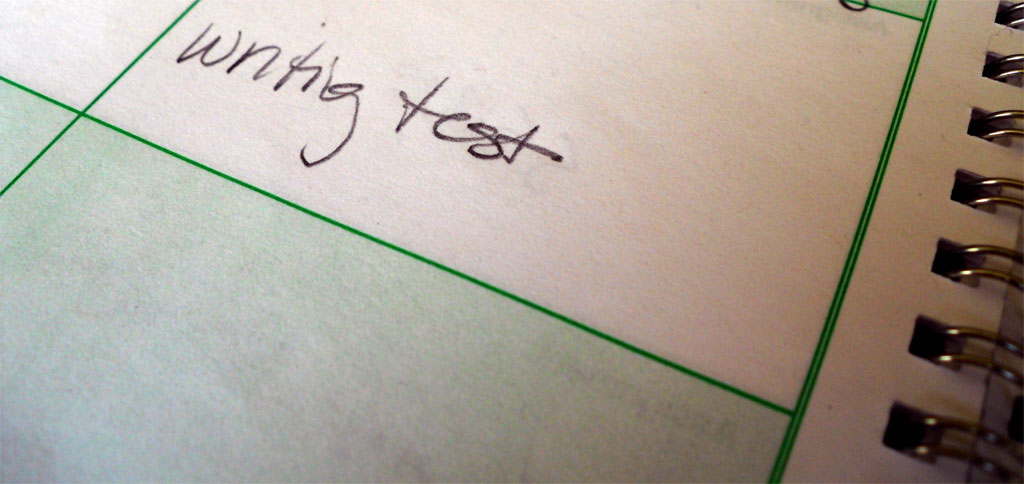 writig test